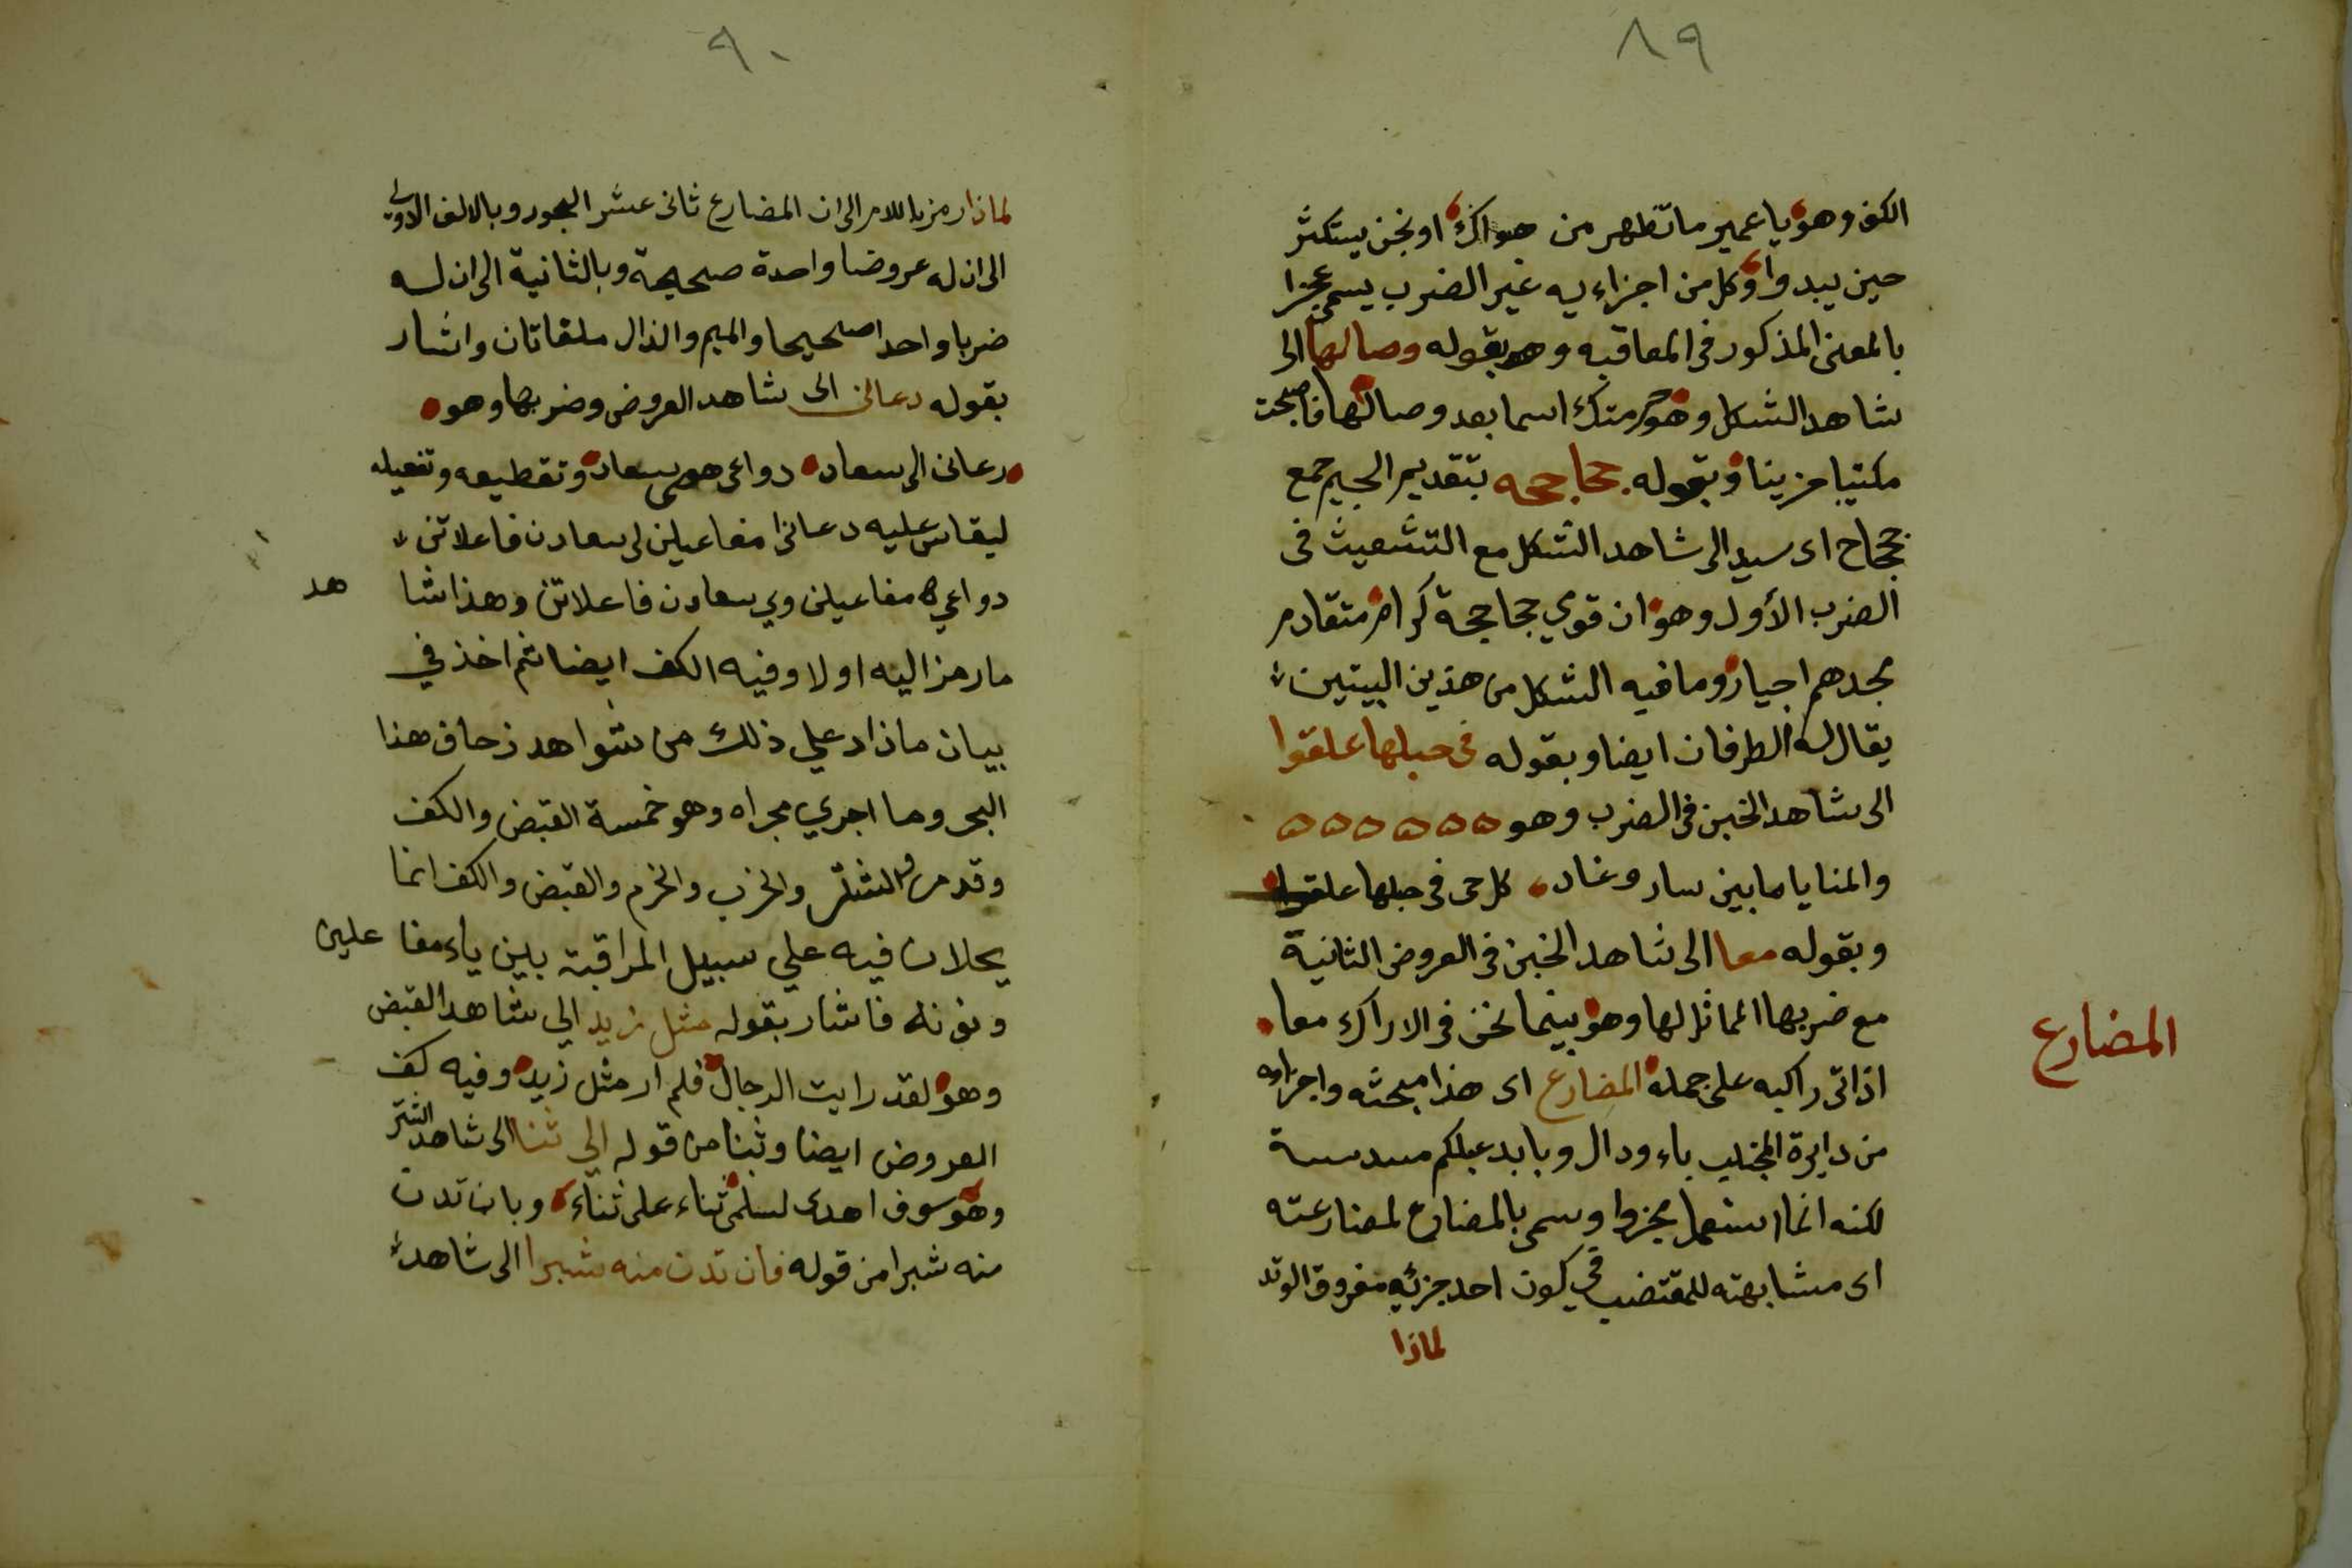 ٨٩
الكف وهو يا عمير ما تظهر من هواك او نجن يستكثر
حين يبدوا وكل من اجزاءيه غير الضرب يسمى عجزا
بالمعنى المذكور فى المعاقبه وهو بقوله وصالها الى
شاهد الشكل وهو صرمتك اسما بعد وصالها فاصبحت
مكتيبا حزينا وبقوله جحاجحه بتقديم الجيم جمع
جحجاح اى سيد الى شاهد الشكل مع التشعيث فى
الضرب الأول وهو ان قومي جحاجحة كرام متقادم
مجدهم اخيار وما فيه الشكل من هذين البيتين
يقال له الطرفان ايضا وبقوله فى حبلها علقوا
الى شاهد الخبن فى الضرب وهو ٥ ٥ ٥ ٥ ٥ ٥
والمنايا ما بين سار وغاد كل حى فى حبلها علقوا
وبقوله معا الى شاهد الخبن فى العروض الثانية
مع ضربها المماثل لها وهو بينما نحن فى الاراك معا
اذ اتى راكب على جمله المضارع اى هذا مبحثه واجزاوه
المضارع
من دايرة المجتلب باء ودال وبابد عبلكم مسدسة
لكنه انما استعمل مجزوا وسمى بالمضارع لمضارعته
اى مشابهته للمقتضب في كون احد جزئيه مفروق الوتد
لماذا
٩٠
لماذا رمز باللام الى ان المضارع ثانى عشر البحور وبالالف الاولى
الى ان له عروضا واحدة صحيحة وبالثانية الى ان له
ضربا واحدا صحيحا والميم والذال ملقاتان واشار
بقوله دعانى الى شاهد العروض وضربها وهو
دعانى الى سعاد دواعى هوى سعاد وتقطيعه وتفعيله
ليقاس عليه دعانى ا مفاعيلن لى سعادن فاعلاتن
دواعي ه مفاعيلن وي سعادن فاعلاتن وهذا شا هد
ما رمز اليه اولا وفيه الكف ايضا ثم اخذ في
بيان ما زاد علي ذلك من شواهد زحاف هذا
البحر وما اجري مجراه وهو خمسة القبض والكف
وقد مر والشتر والخرب والخرم والقبض والكف انما
يحلان فيه علي سبيل المراقبة بين ياء مفا علين
ونونه فاشار بقوله مثل زيد الي شاهد القبض
وهو لقد رايت الرجال فلم ار مثل زيد وفيه كف
العروض ايضا وثبنا من قوله الي ثنا الى شاهد الشتر
وهو سوف اهدى لسلمى ثناء على ثناء وبان تدن
منه شبرا من قوله فان تدن منه شبرا الى شاهد